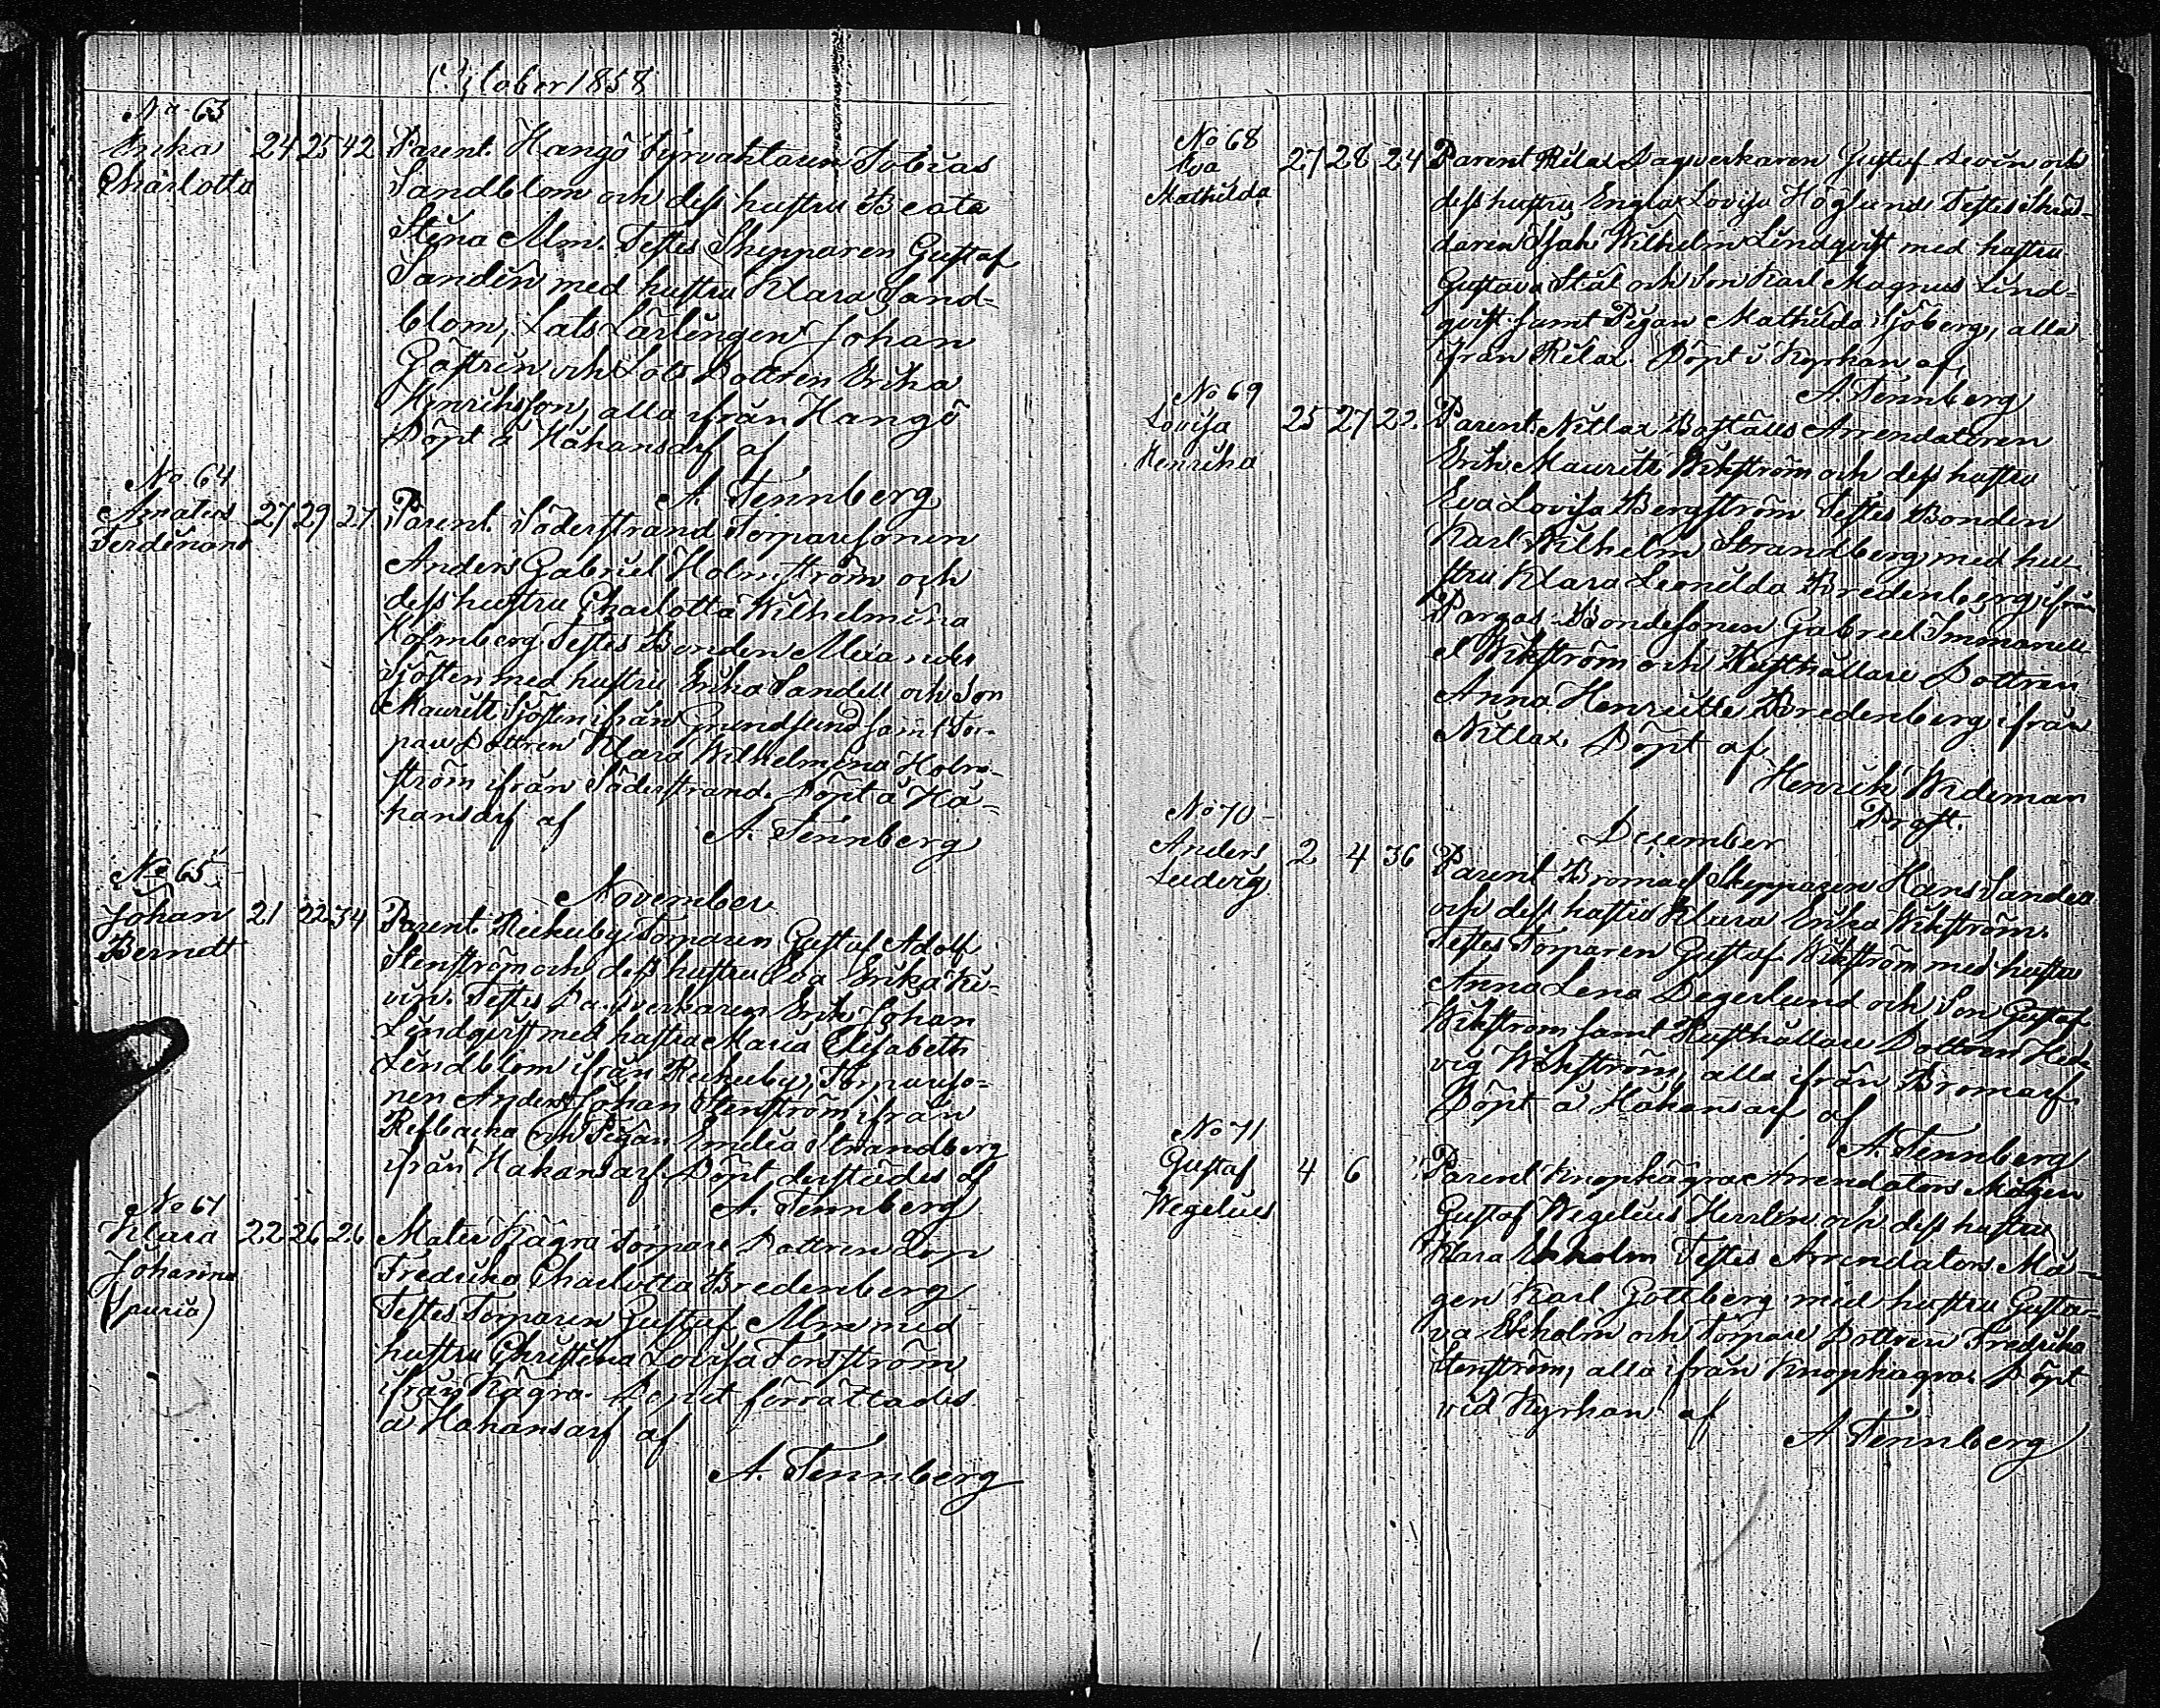 October 1858
No 63
Erika 24 25 42 Parent. Hangö Fyrvaktaren Tobias
Charlotta Sandblom och dess hustru Beata
Stina Alm. Testes Skepparen Gustaf
Sandin med hustru Klara Sand-
blom, Lots Lärlingen Johan
Gästrin och Lots Dottren Erika
Henriksson, alla ifrån Hangö
Döpt å Håkansarf af
A. Tennberg
No 64
Amatus 27 29 27 Parent. Söderstrand Torparesonen
Ferdinand Anders Gabriel Holmström och
dess hustru Charlotta Wilhelmina
Holmberg. Testes Bonden Alexander
Sjösten med hustru Erika Sandell och Son
Maurits Sjösten ifrån Grundsund samt Tor-
pare Dottren Klara Wilhelmina Holm-
ström ifrån Söderstrand. Döpt å Hå-
kansarf af A. Tennberg
No 65
November
Johan 21 22 34 Parent. Rekuby Torparen Gustaf Adolf
Bernett Stenström och dess hustru Eva Erika
Testes Dagsverkaren Erik Johan
Lindqvist med hustru Maria Elisabeth
Lindblom ifrån Rekuby, Torpareso-
nen Anders Johan Stenström ifrån
Refbacka och Pigan Emelia Strandberg
ifrån Håkansarf Döpt derstädes af
A. Tennberg
No 67
Klara 22 26 26 Mater Kågra Torpare Dottren
Johanna Fredrika Charlotta Bredenberg
(spuria) Testes Torparen Gustaf Alm med
hustru Christina Lovisa Forsström
ifrån Kågra. Dopet förrättades
å Håkansarf af
A. Tennberg
No 68
Eva 27 28 24 Parent Rilax Dagsverkaren Gustaf Levin och
Mathilda dess hustru Engla Lovisa Höglund Testes Skräd-
daren Isak Wilhelm Lindqvist med hustru
Gustava Stål och Son Karl Magnus Lind-
qvist samt Pigan Mathilda Sjöberg, alla
ifrån Rilax. Döpt i Kyrkan af
A. Tennberg
No 69
Lovisa 25 27 22. Parent. Nitlax Boställs Arrendatoren
Henrika Erik Maurits Wikström och dess hustru
Eva Lovisa Bergström Testes Bonden
Karl Wilhelm Strandberg med hu-
stru Klara Leonilda Bredenberg, ifrån
Pargas Bondesonen Gabriel Immanu-
el Wikström och Rusthållare Dottren
Anna Henriette Bredenberg ifrån
Nitlax. Döpt af
Henrik Wideman
Prost.
No 70
December
Anders 2 4 36 Parent Bromarf Skepparen Hans Sandell
Ludvig och dess hustru Klara Erika Wikström.
Testes Torparen Gustaf Wikström med hustru
Anna Lena Degerlund och Son Gustaf
Wikström samt Rusthållare Dottren Hed-
vig Wikström, alla ifrån Bromarf.
Döpt å Håkansarf af
A. Tennberg
No 71
Gustaf 4 6 Parent Knopkägra Arrendators Mågen
Wegelius Gustaf Wegelius Herrlin och dess hustru
Klara Ekholm Testes Arrendators Må-
gen Karl Gottberg med hustru Gusta-
va Ekholm och Torpare Dottren Fredrika
Stenström, alla ifrån Knopkägra. Döpt
vid Kyrkan af
A. Tennberg